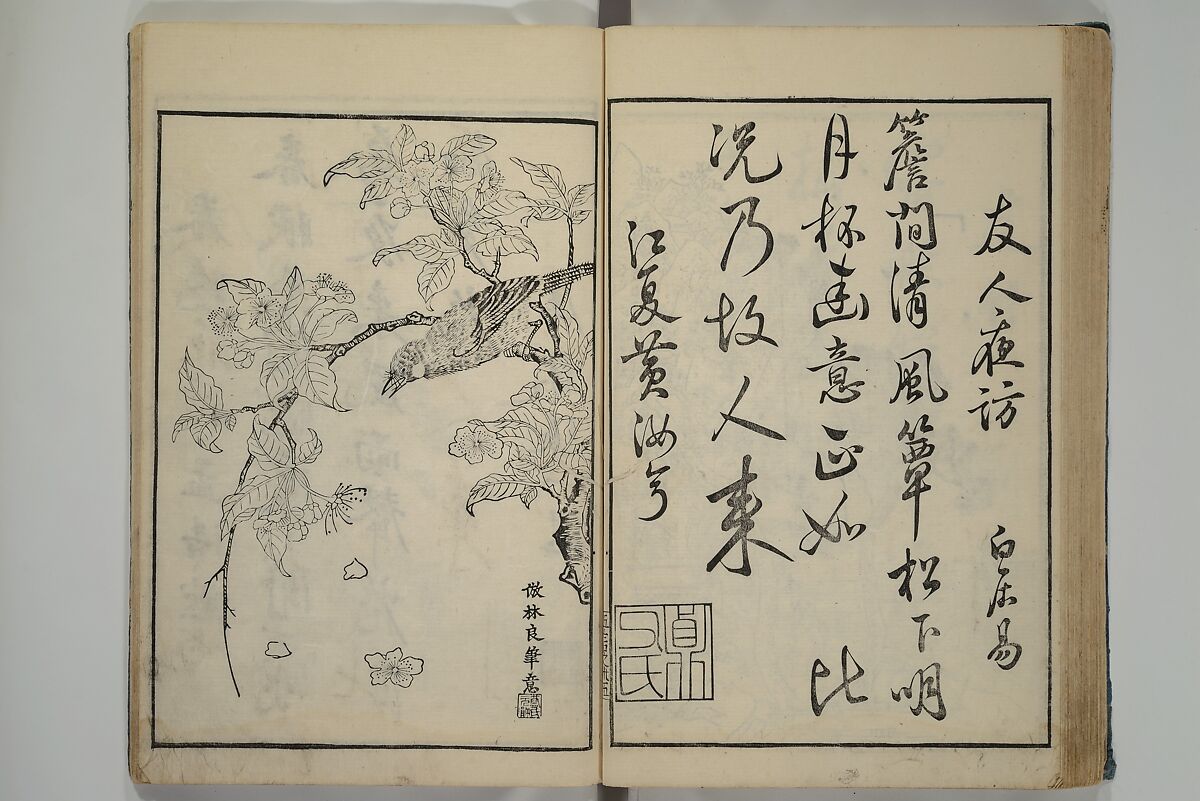 友人夜訪 白居易
簷間清風簟松下明
月杯幽意正如此
况乃故人来
江夏黄汝亨
貞父氏
倣林良筆意